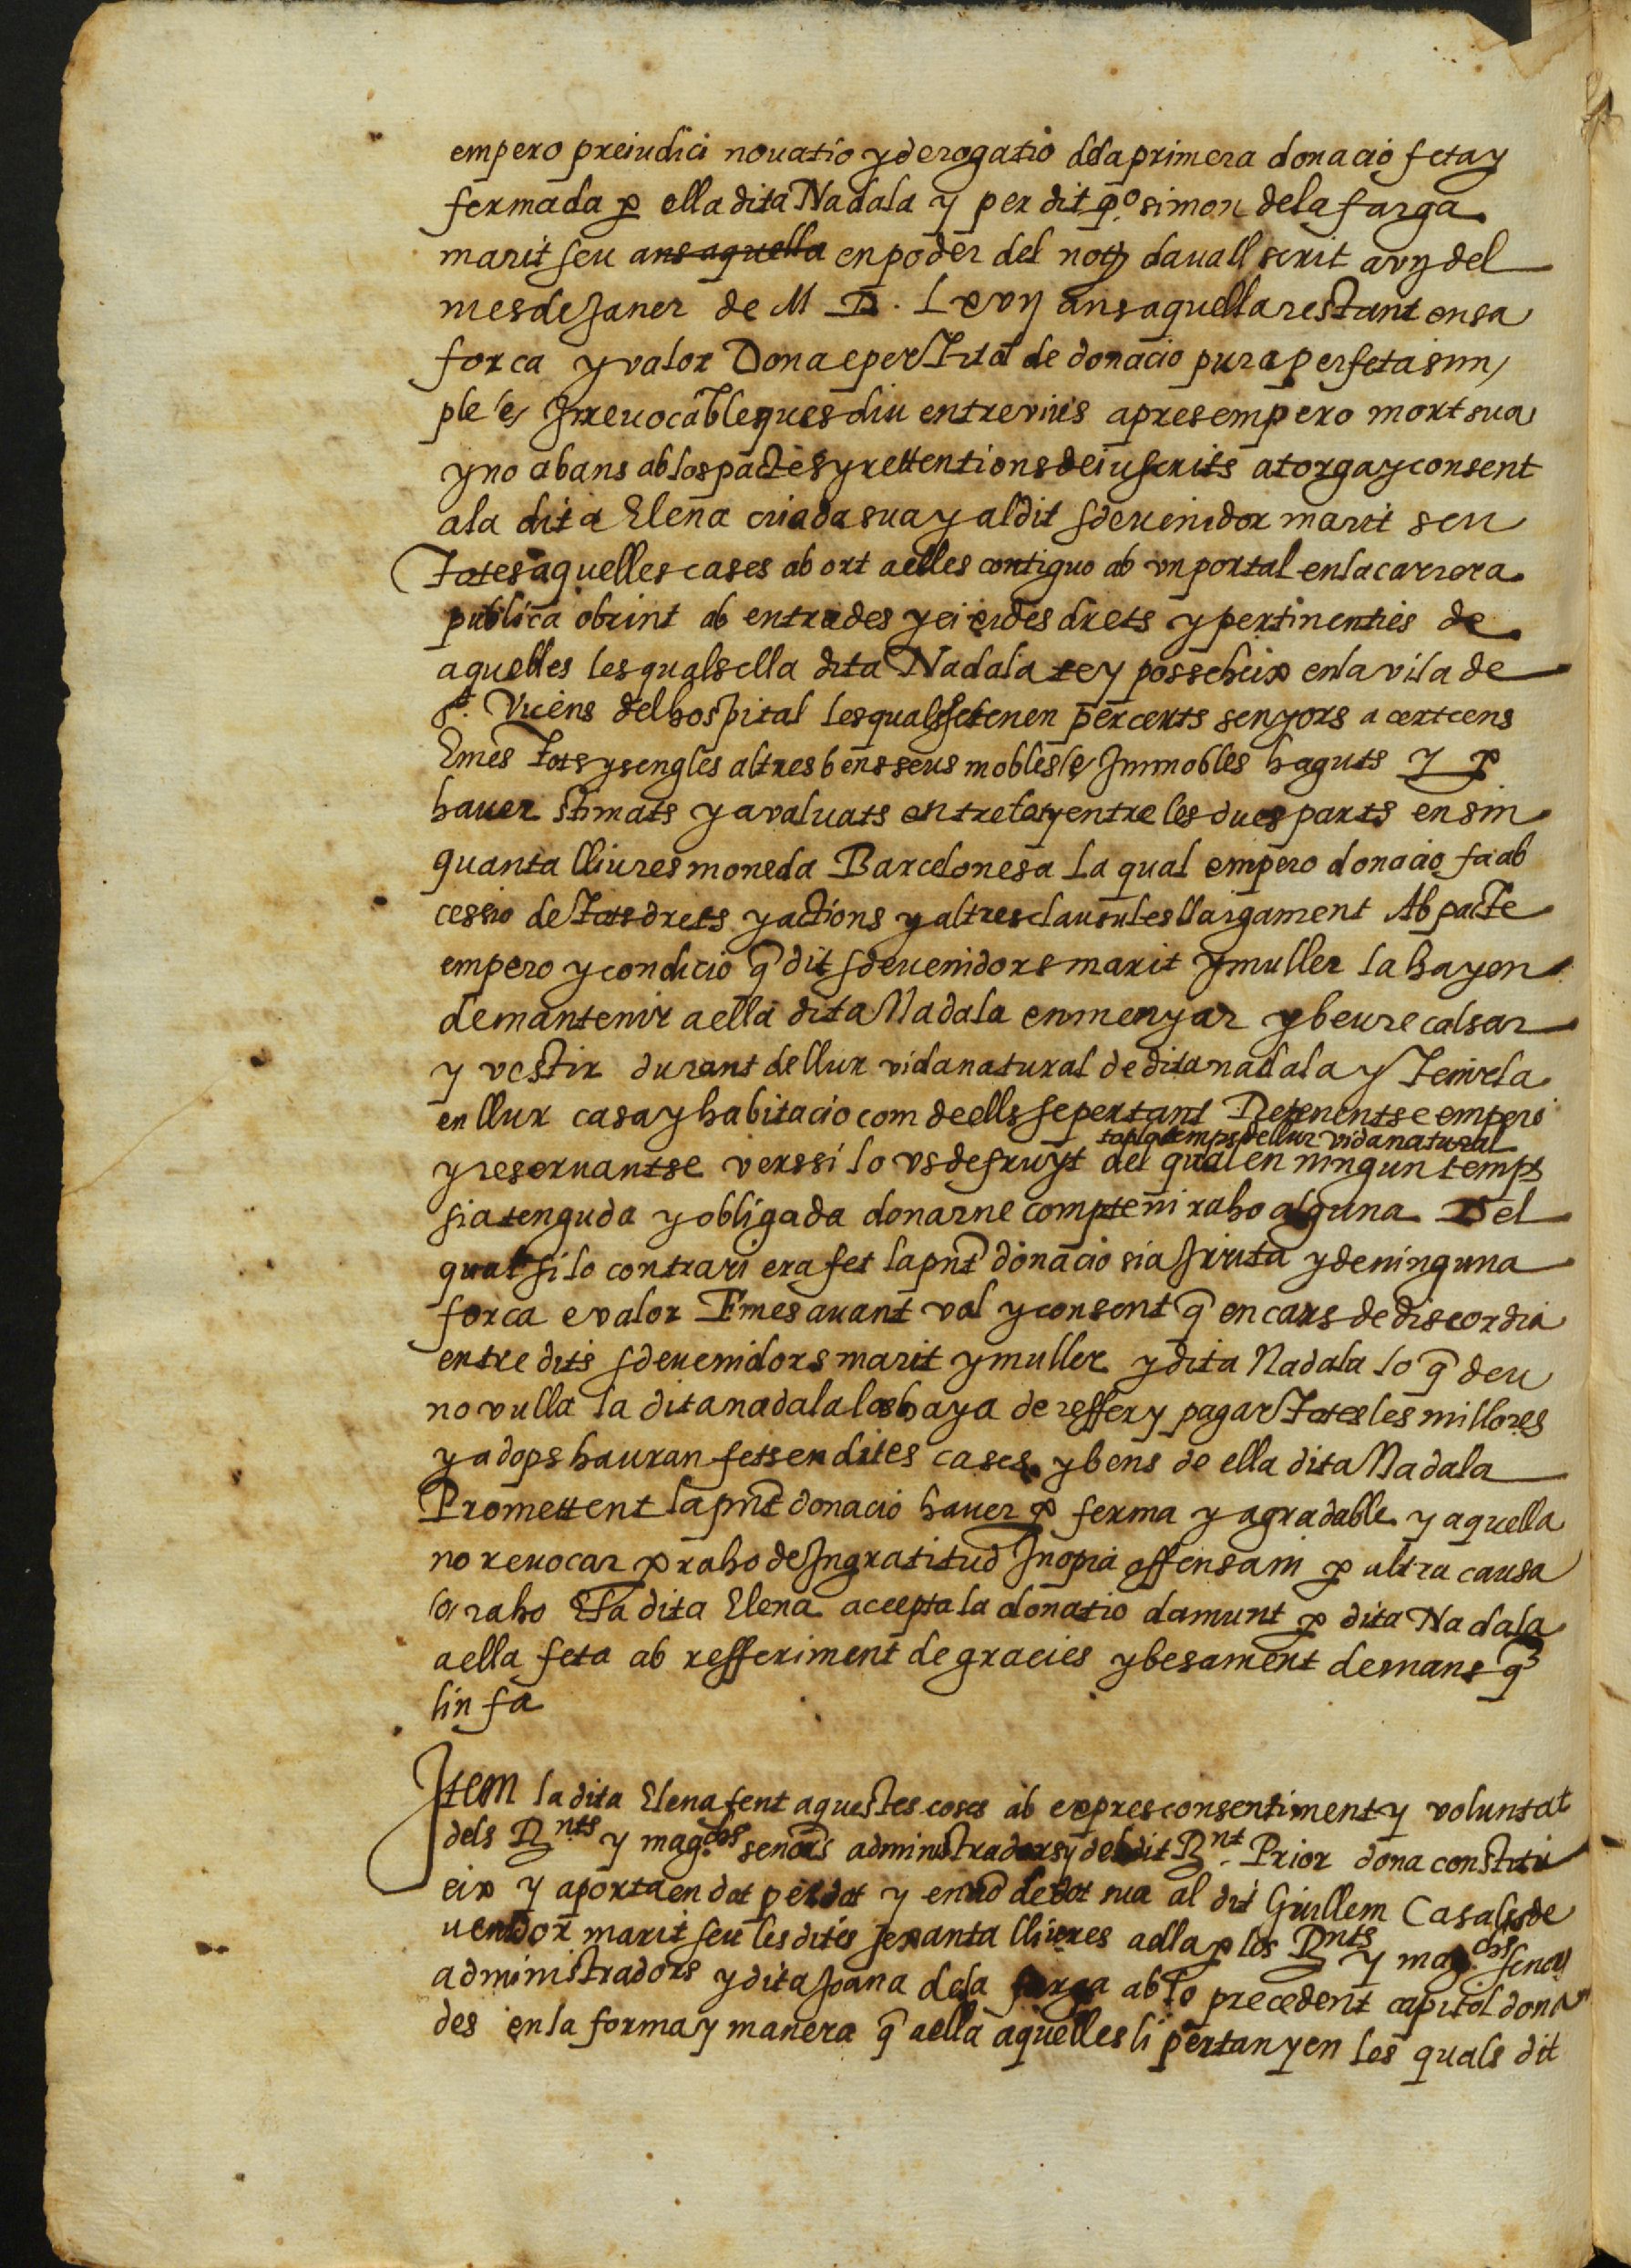 empero preiudici nouatio y derogatio dela primera donacio feta y
fermada p ella dita Nadala y per dit qº simon dela farga
marit seu ans aquella en poder del noty dauall scrit a vy del
mes de Janer de M D. Lxvij ans aquella restant en sa
forca y valor Dona e per titol de donacio pura perfeta sim
ple e Irreuocable ques diu entre vius apres empero mort sua
y no abans ab los pactes y rettentions deiuscrits atorga y consent
ala dita Elena criada sua y al dit sdeuenidor marit seu
Totes aquelles cases ab ort a elles contiguo ab vn portal en la carrera
publica obrint ab entrades y eixides drets y pertinenties de
aquelles les quals ella dita Nadala te y posseheix en la vila de
St. Vicens del hospital les quals se tenen per certs senyors a cert cens
E mes tots y sengles altres bens seus mobles e Immobles haguts y p
hauer stimats y avaluats entre totes y entre les dues parts en sin
quanta lliures moneda Barcelonesa La qual empero donacio fa ab
cessio de tots drets y actions y altres clausules llargament Ab pacte
empero y condicio q dit sdeuenidors marit y muller la hayen
de mantenir a ella dita Nadala en menyar y beure calsar
y vestir durant de llur vida natural de dita nadala y tenirla
en llur casa y habitacio com de ells se pertant Retenentse empero
tot lo temps de llur vida natural
y reseruantse verssi lo vsdefruyt del qual en ningun temps
sia tenguda y obligada donarne compte ni raho alguna Del
qual si lo contrari era fet la pnt donacio sia Irrita y de ninguna
forca e valor E mes auant vol y consent q en cars de discordia
entre dits sdeuenidors marit y muller y dita Nadala lo q deu
no vulla la dita nadala los haya de reffer y pagar totes les millores
y adops hauran fets en dites cases y bens de ella dita Nadala
Promettent la pnt donacio hauer p ferma y agradable y aquella
no reuocar p raho de Ingratitud Inopia offensa ni p altra causa
o raho E la dita Elena accepta la donatio damunt p dita Nadala
a ella feta ab refferiment de gracies y besament de mans q
lin fa
Item la dita Elena fent aquestes coses ab expres consentiment y voluntat
dels Rnts y magchs senors administradors y del dit Rnt. Prior dona constitu
eix y aporta en dot per dot y en nõ de dot sua al dit Guillem Casals sde
uenidor marit seu les dites sexanta lliures a ella p los Rnts y magchs senors
administradors y dita Joana dela farga ab lo precedent capitol dona
des en la forma y manera q a ella aquelles li pertanyen les quals dit